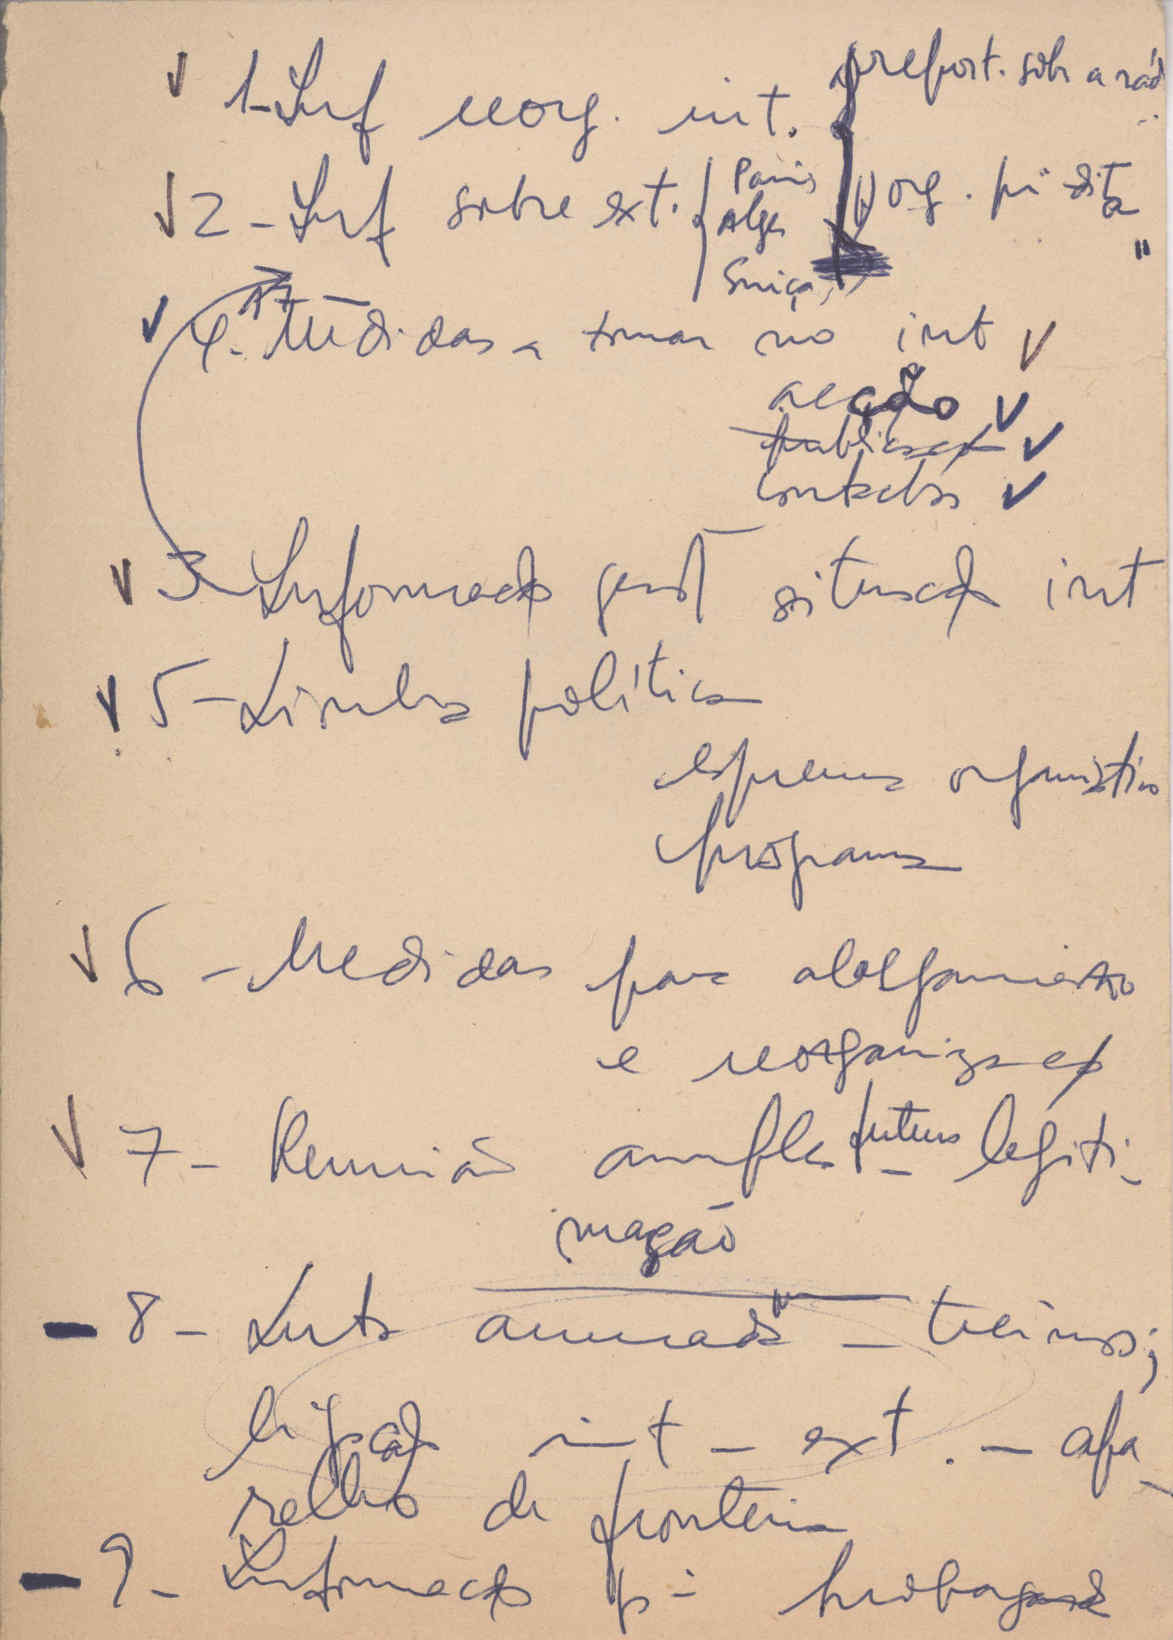 1-Inf reorg. int. { report. sobre a rád
2-Inf sobre ext. { Paris
Alger
Suiça
org. pi dita
"
4. Medidas a tomar no int
acção
publicação
contactos
3-Informação geral situação int
5-Linha política
esquema organizativo
programa
6-Medidas para alargamento
e reorganização
7-Reunião ampla futura - legiti-
mação
8-Luta armada - treinos;
ligação int - ext. - apa-
relho de fronteira
9-Informação p- propaganda